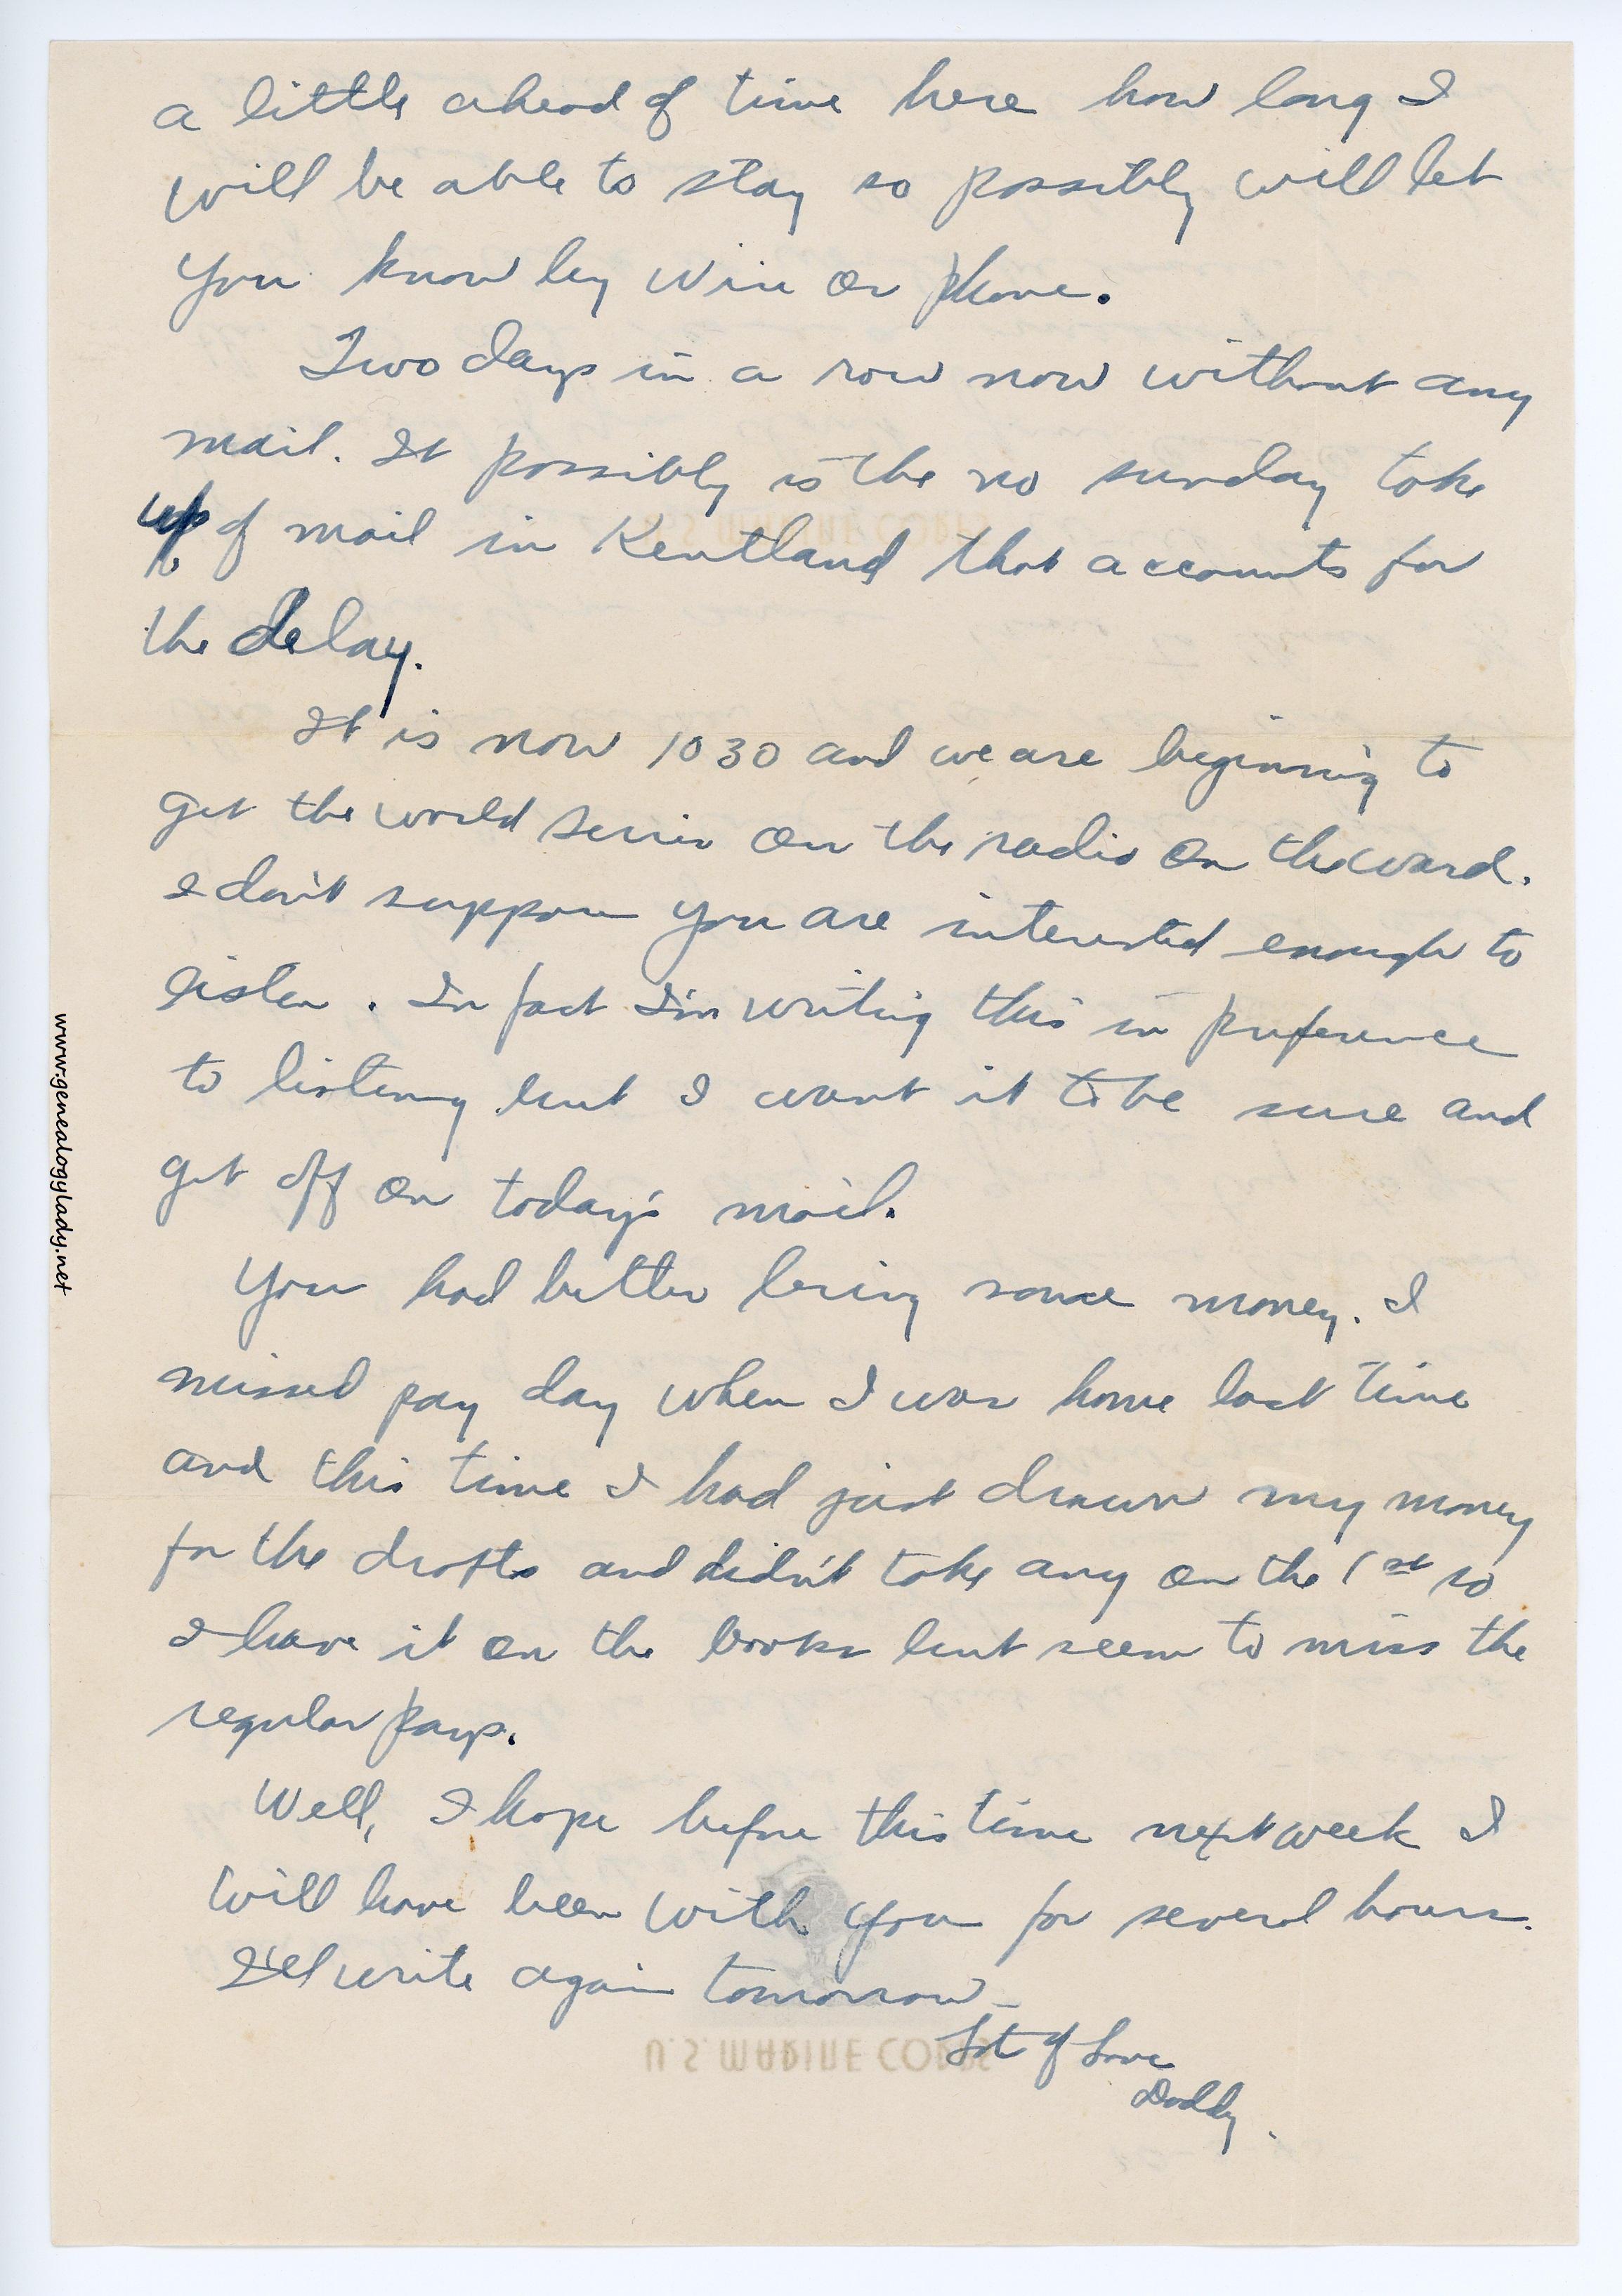 a little ahead of time here how long I
will be able to stay so possibly will let
you know by wire or phone.
Two days in a row now without any
mail. It possibly is the no sunday take
up of mail in Kentland that accounts for
the delay.
It is now 1030 and we are beginning to
get the world series on the radio on the ward.
I don't suppose you are interested enough to
listen. In fact I'm writing this in preference
to listening but I want it to be sure and
get off on today's mail.
You had better bring some money. I
missed pay day when I was home last time
and this time I had just drawn my money
for the drafts and didn't take any on the 1st so
I have it on the books but seem to miss the
regular pays.
Well, I hope before this time next week I
will have been with you for several hours.
I'll write again tomorrow
Lot of Love
Daddy.
U. S. MARINE CORPS
U. S. MARINE CORPS
www.genealogylady.net